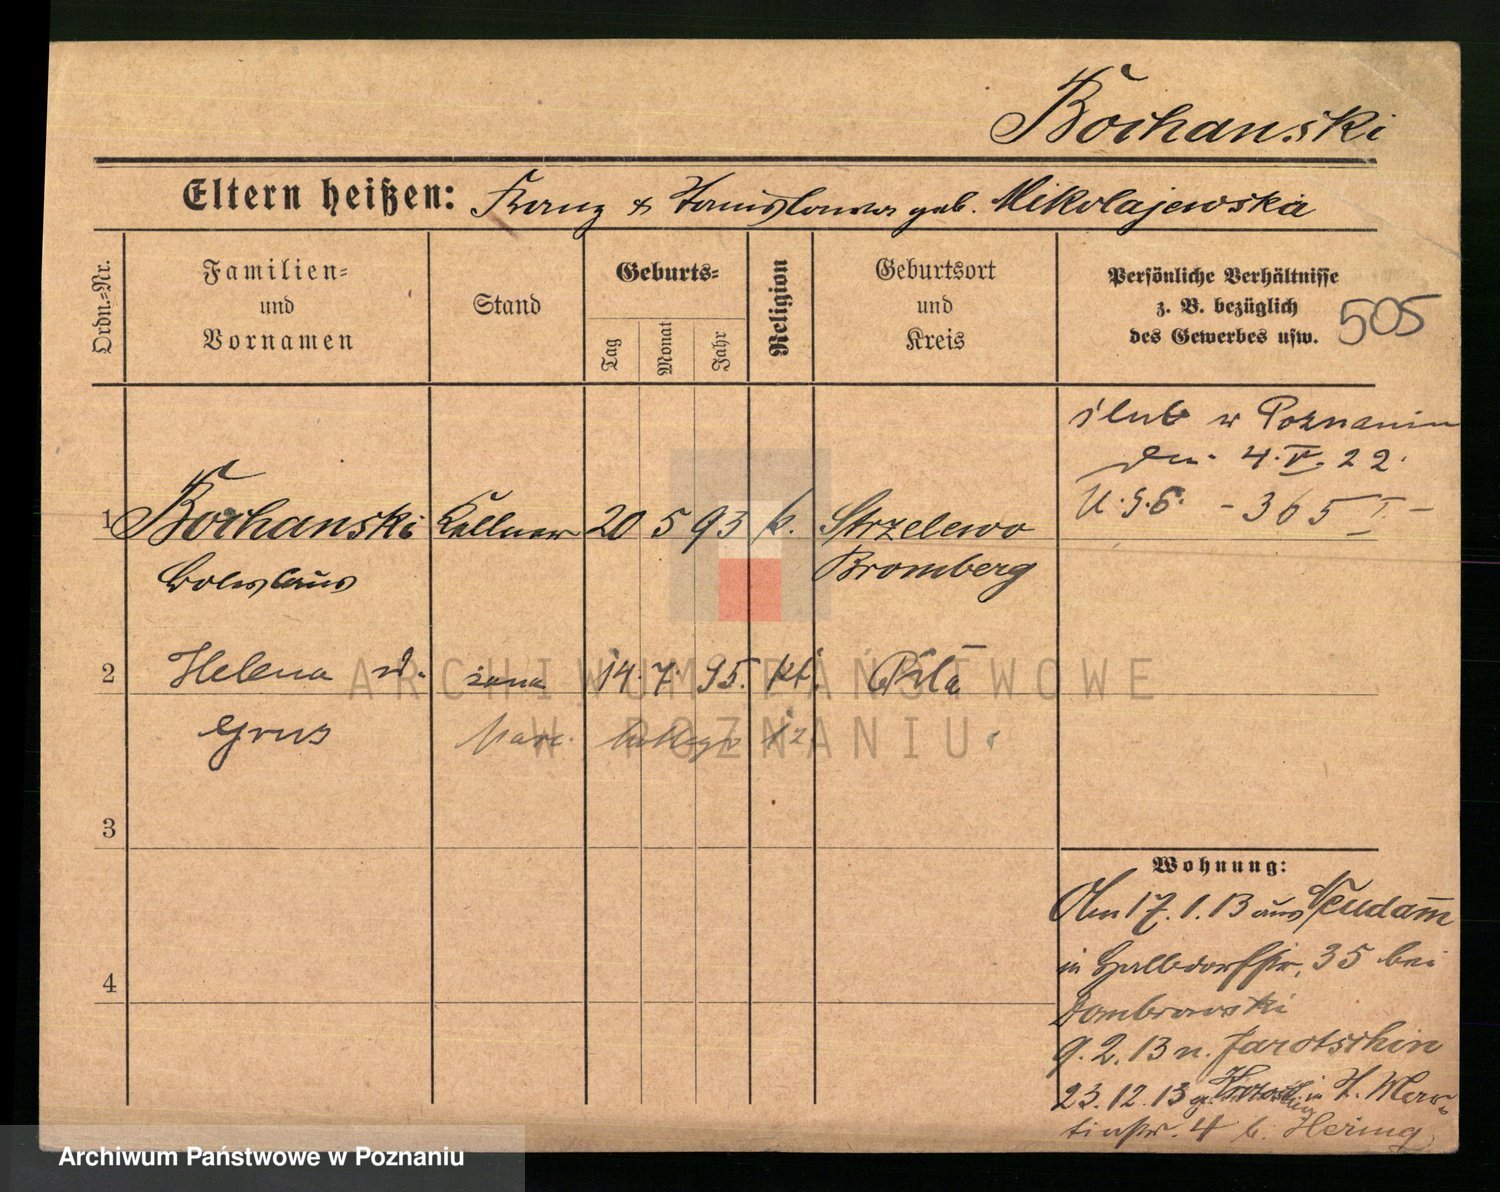 Bochanski
Eltern heißen: Franz & Stanislawa geb. Mikolajewska
Ordn.-Nr.
Familien-
und
Vornamen
Stand
Geburts-
Tag
Monat
Jahr
Religion
Geburtsort
und
Kreis
Persönliche Verhältnisse
z. B. bezüglich
des Gewerbes usw.
505
ślub w Poznaniu
4.V.22.
U.S.C. - 365 I. -
1 Bochanski Kellner 20 5 93 k. Strzelewo
Boleslaus Bromberg
2 Helena ż. żona 14. 7. 95. kt. Piła
Grus
3
4
Wohnung:
Am 17.1.13 aus Neudamm
in Halbdorfstr. 35 bei
Dombrowski
9.2.13 n. Jarotschin
23.12.13 in St. Mar-
tinstr. 4 b. Hering
ARCHIWUM PAŃSTWOWE
W POZNANIU
Archiwum Państwowe w Poznaniu